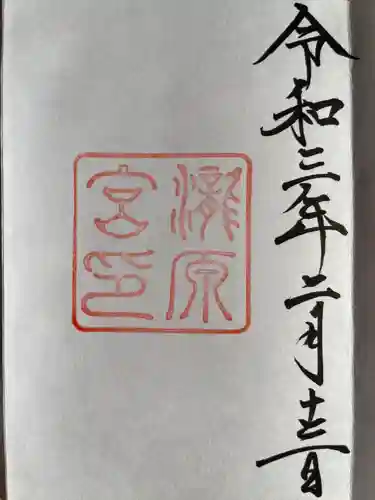 令和三年二月十三日
瀧原
宮印